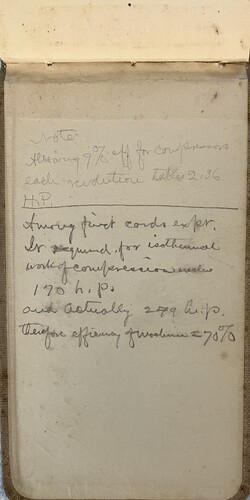 Note
Allowing 9% eff for compressors
each revolution takes 2.36
H.P.
Among first cards expr.
It required for isothermal
work of compression
170 h.p.
and actually 249 h.p.
therefore efficiency of machine = 70%